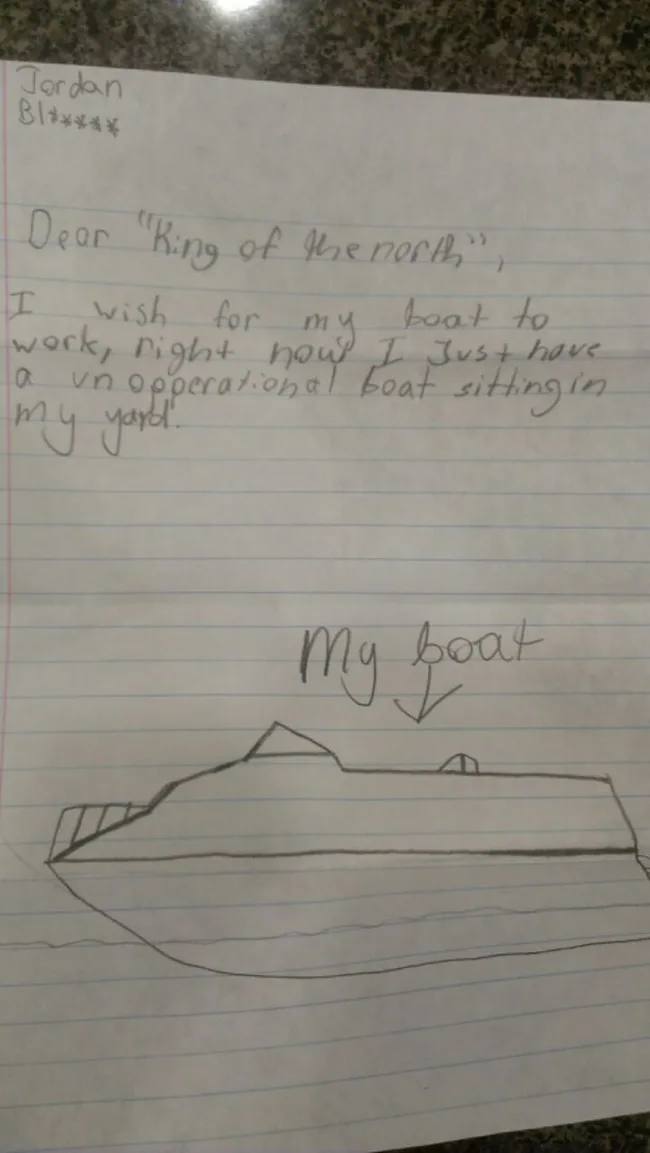 Jordan
Bl*****
Dear "King of the north",
I wish for my boat to
work, right now I Just have
a unopperational boat sitting in
my yard.
My boat